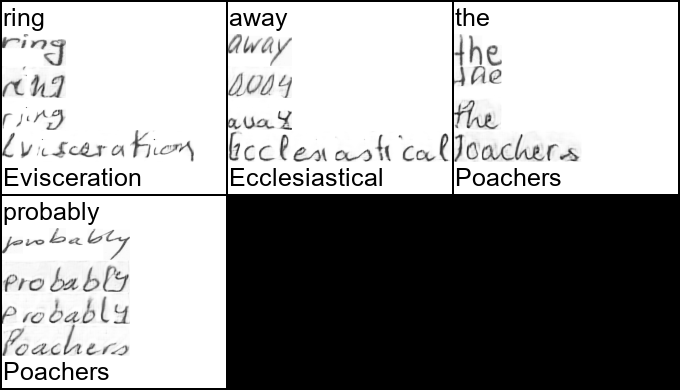 ring
ring
ring
ring
Evisceration
Evisceration
away
away
away
away
Ecclesiastical
Ecclesiastical
the
the
the
the
Poachers
Poachers
probably
probably
probably
probably
Poachers
Poachers